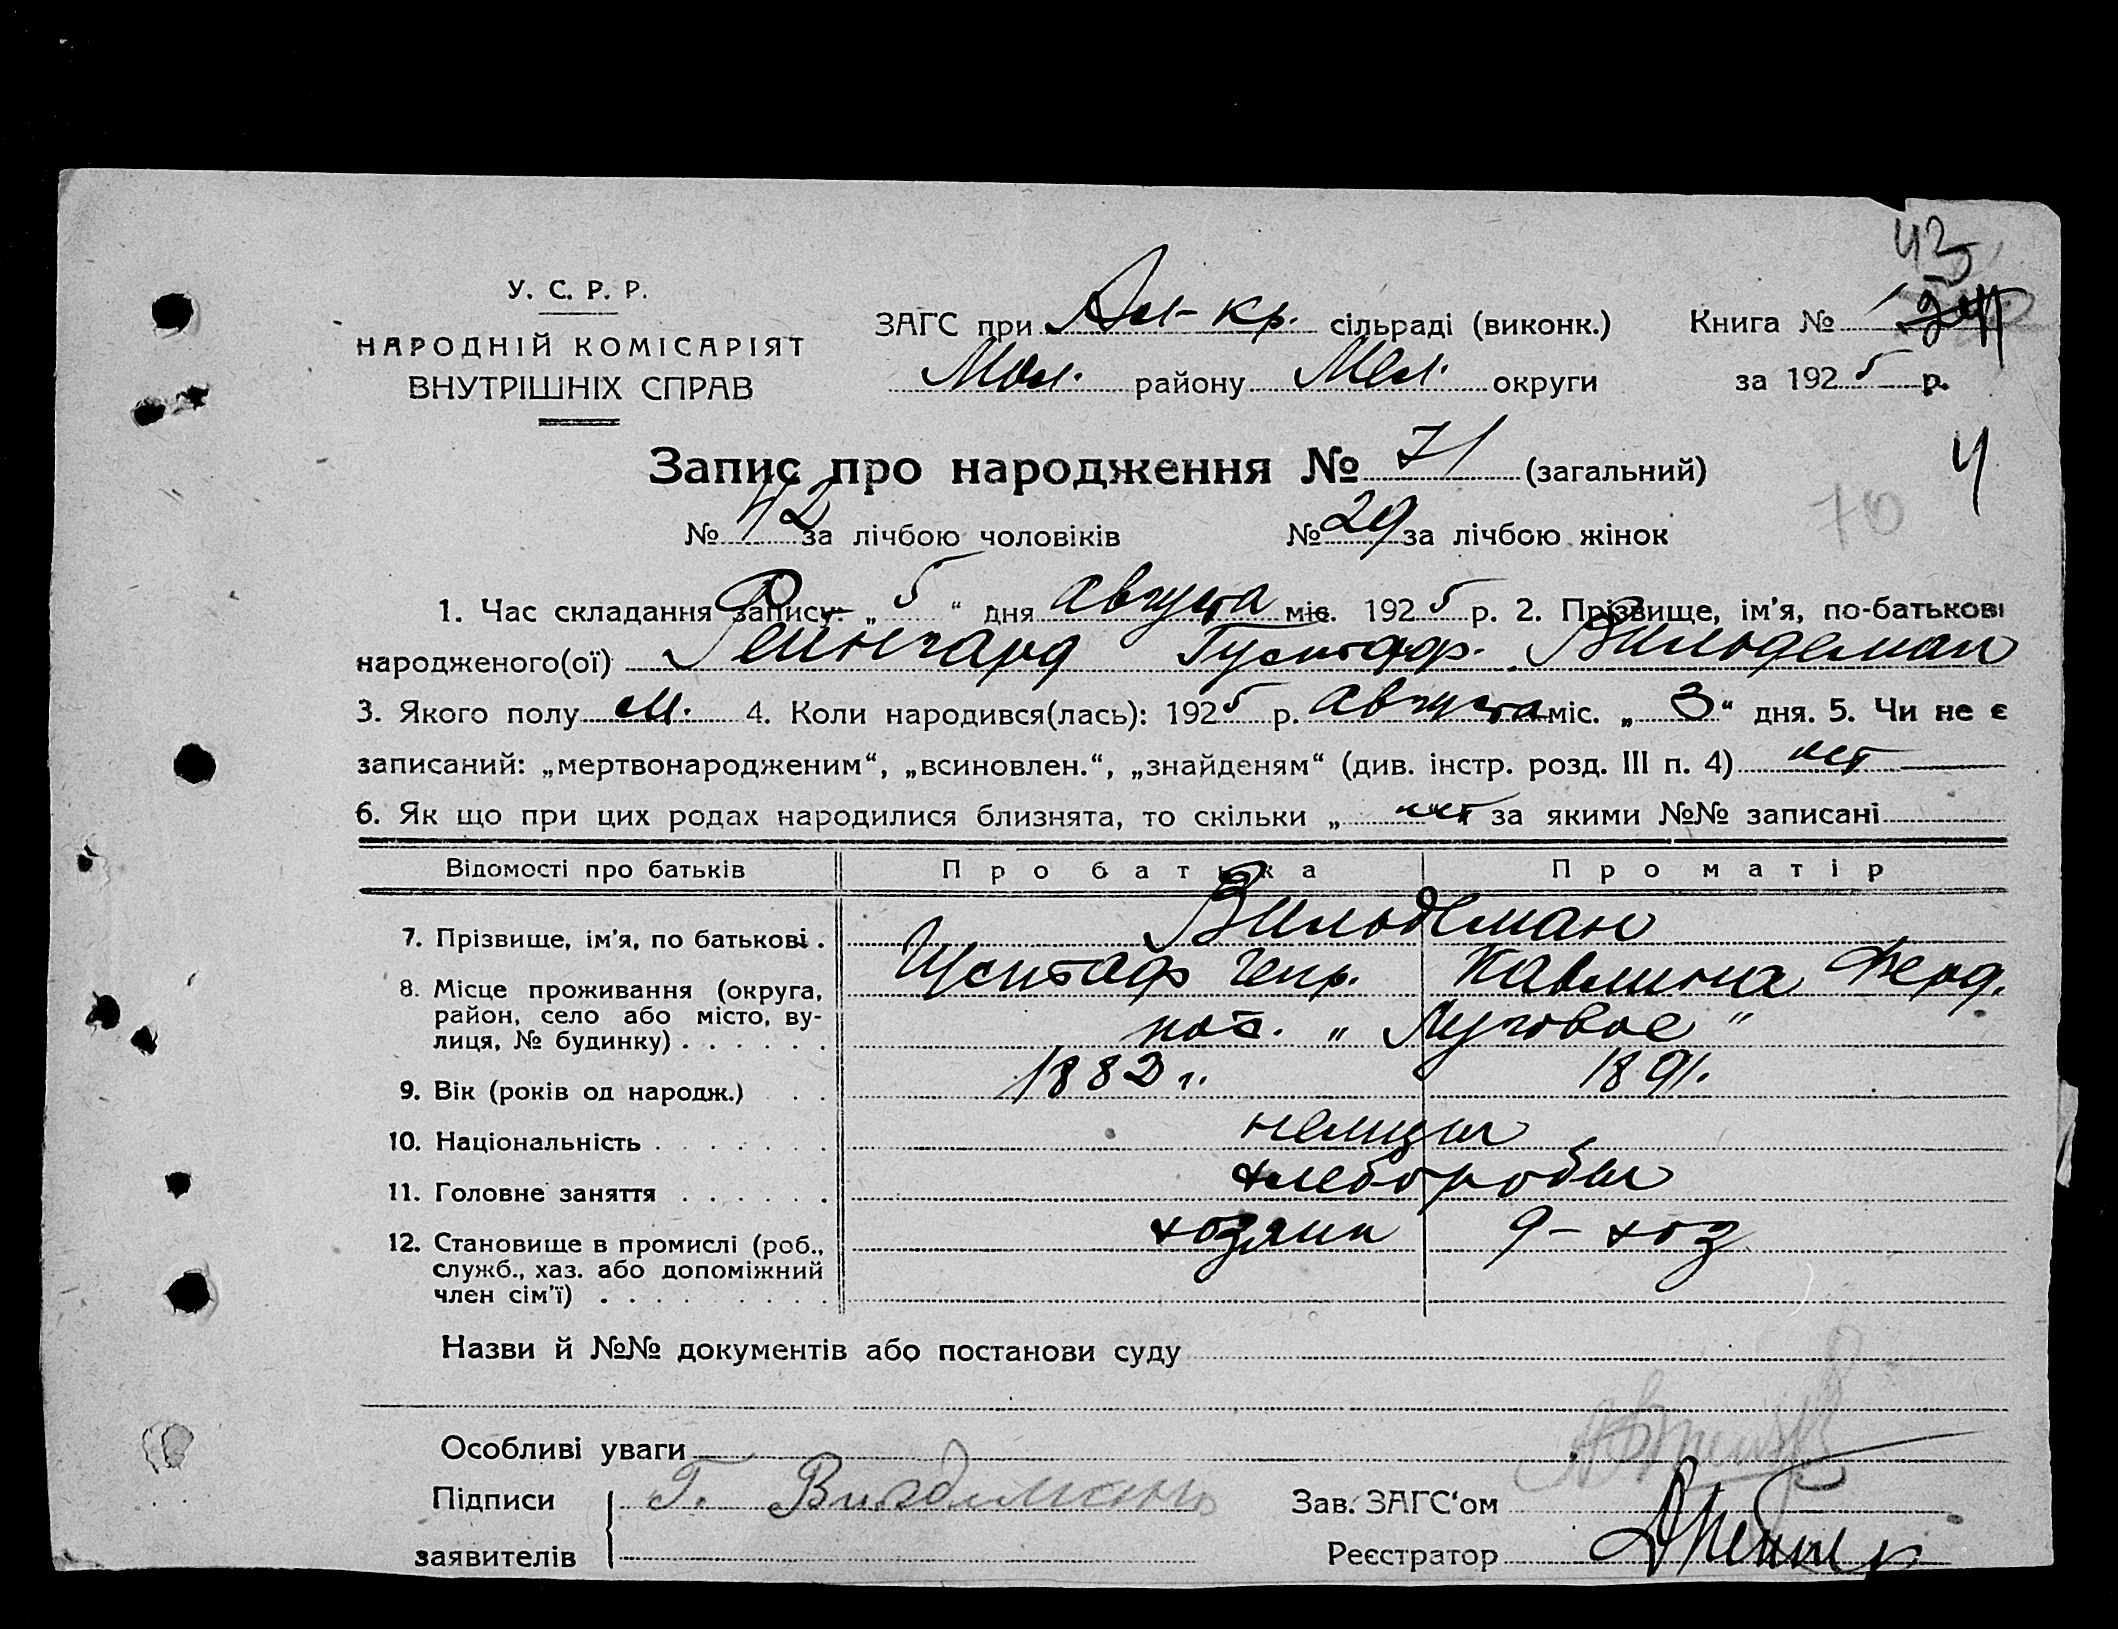 43
У. С. Р. Р.
НАРОДНІЙ КОМІСАРІЯТ
ВНУТРІШНІХ СПРАВ
ЗАГС при Ал-кр. сільраді (виконк.) Книга №
Мол. району Мел. округи за 1925 р.
4
Запис про народження № 71 (загальний)
70
№ 42 за лічбою чоловіків № 29 за лічбою жінок
1. Час складання запису: „ 5 “ дня августа міс. 1925 р. 2. Прізвище, ім'я, по-батькові
народженого(ої) Рейнгард Густаф. Вильдеман
3. Якого полу м. 4. Коли народився(лась): 1925 р. августа міс. „ 3 “ дня. 5. Чи не є
записаний: „мертвонародженим“, „всиновлен.“, „знайденям“ (див. інстр. розд. III п. 4) нет
6. Як що при цих родах народилися близнята, то скільки „ нет за якими №№ записані
Відомості про батьків Про батька Про матір
7. Прізвище, ім'я, по батькові . Вильдеман
Густаф Генр. Павлина Ферд.
8. Місце проживання (округа,
район, село або місто, ву-
лиця, № будинку) . . . . . . пос. „ Луговое "
9. Вік (років од народж.) . . 1883 г. 1891.
10. Національність . . . . . . . немцы
11. Головне заняття . . . . . . хлеборобы
12. Становище в промислі (роб., хозяин д-хоз
служб., хаз. або допоміжний
член сім'ї) . . . . . . . .
Назви й №№ документів або постанови суду
Особливі уваги
Підписи Г. Вилдиманъ Зав. ЗАГС'ом
заявителів Реєстратор